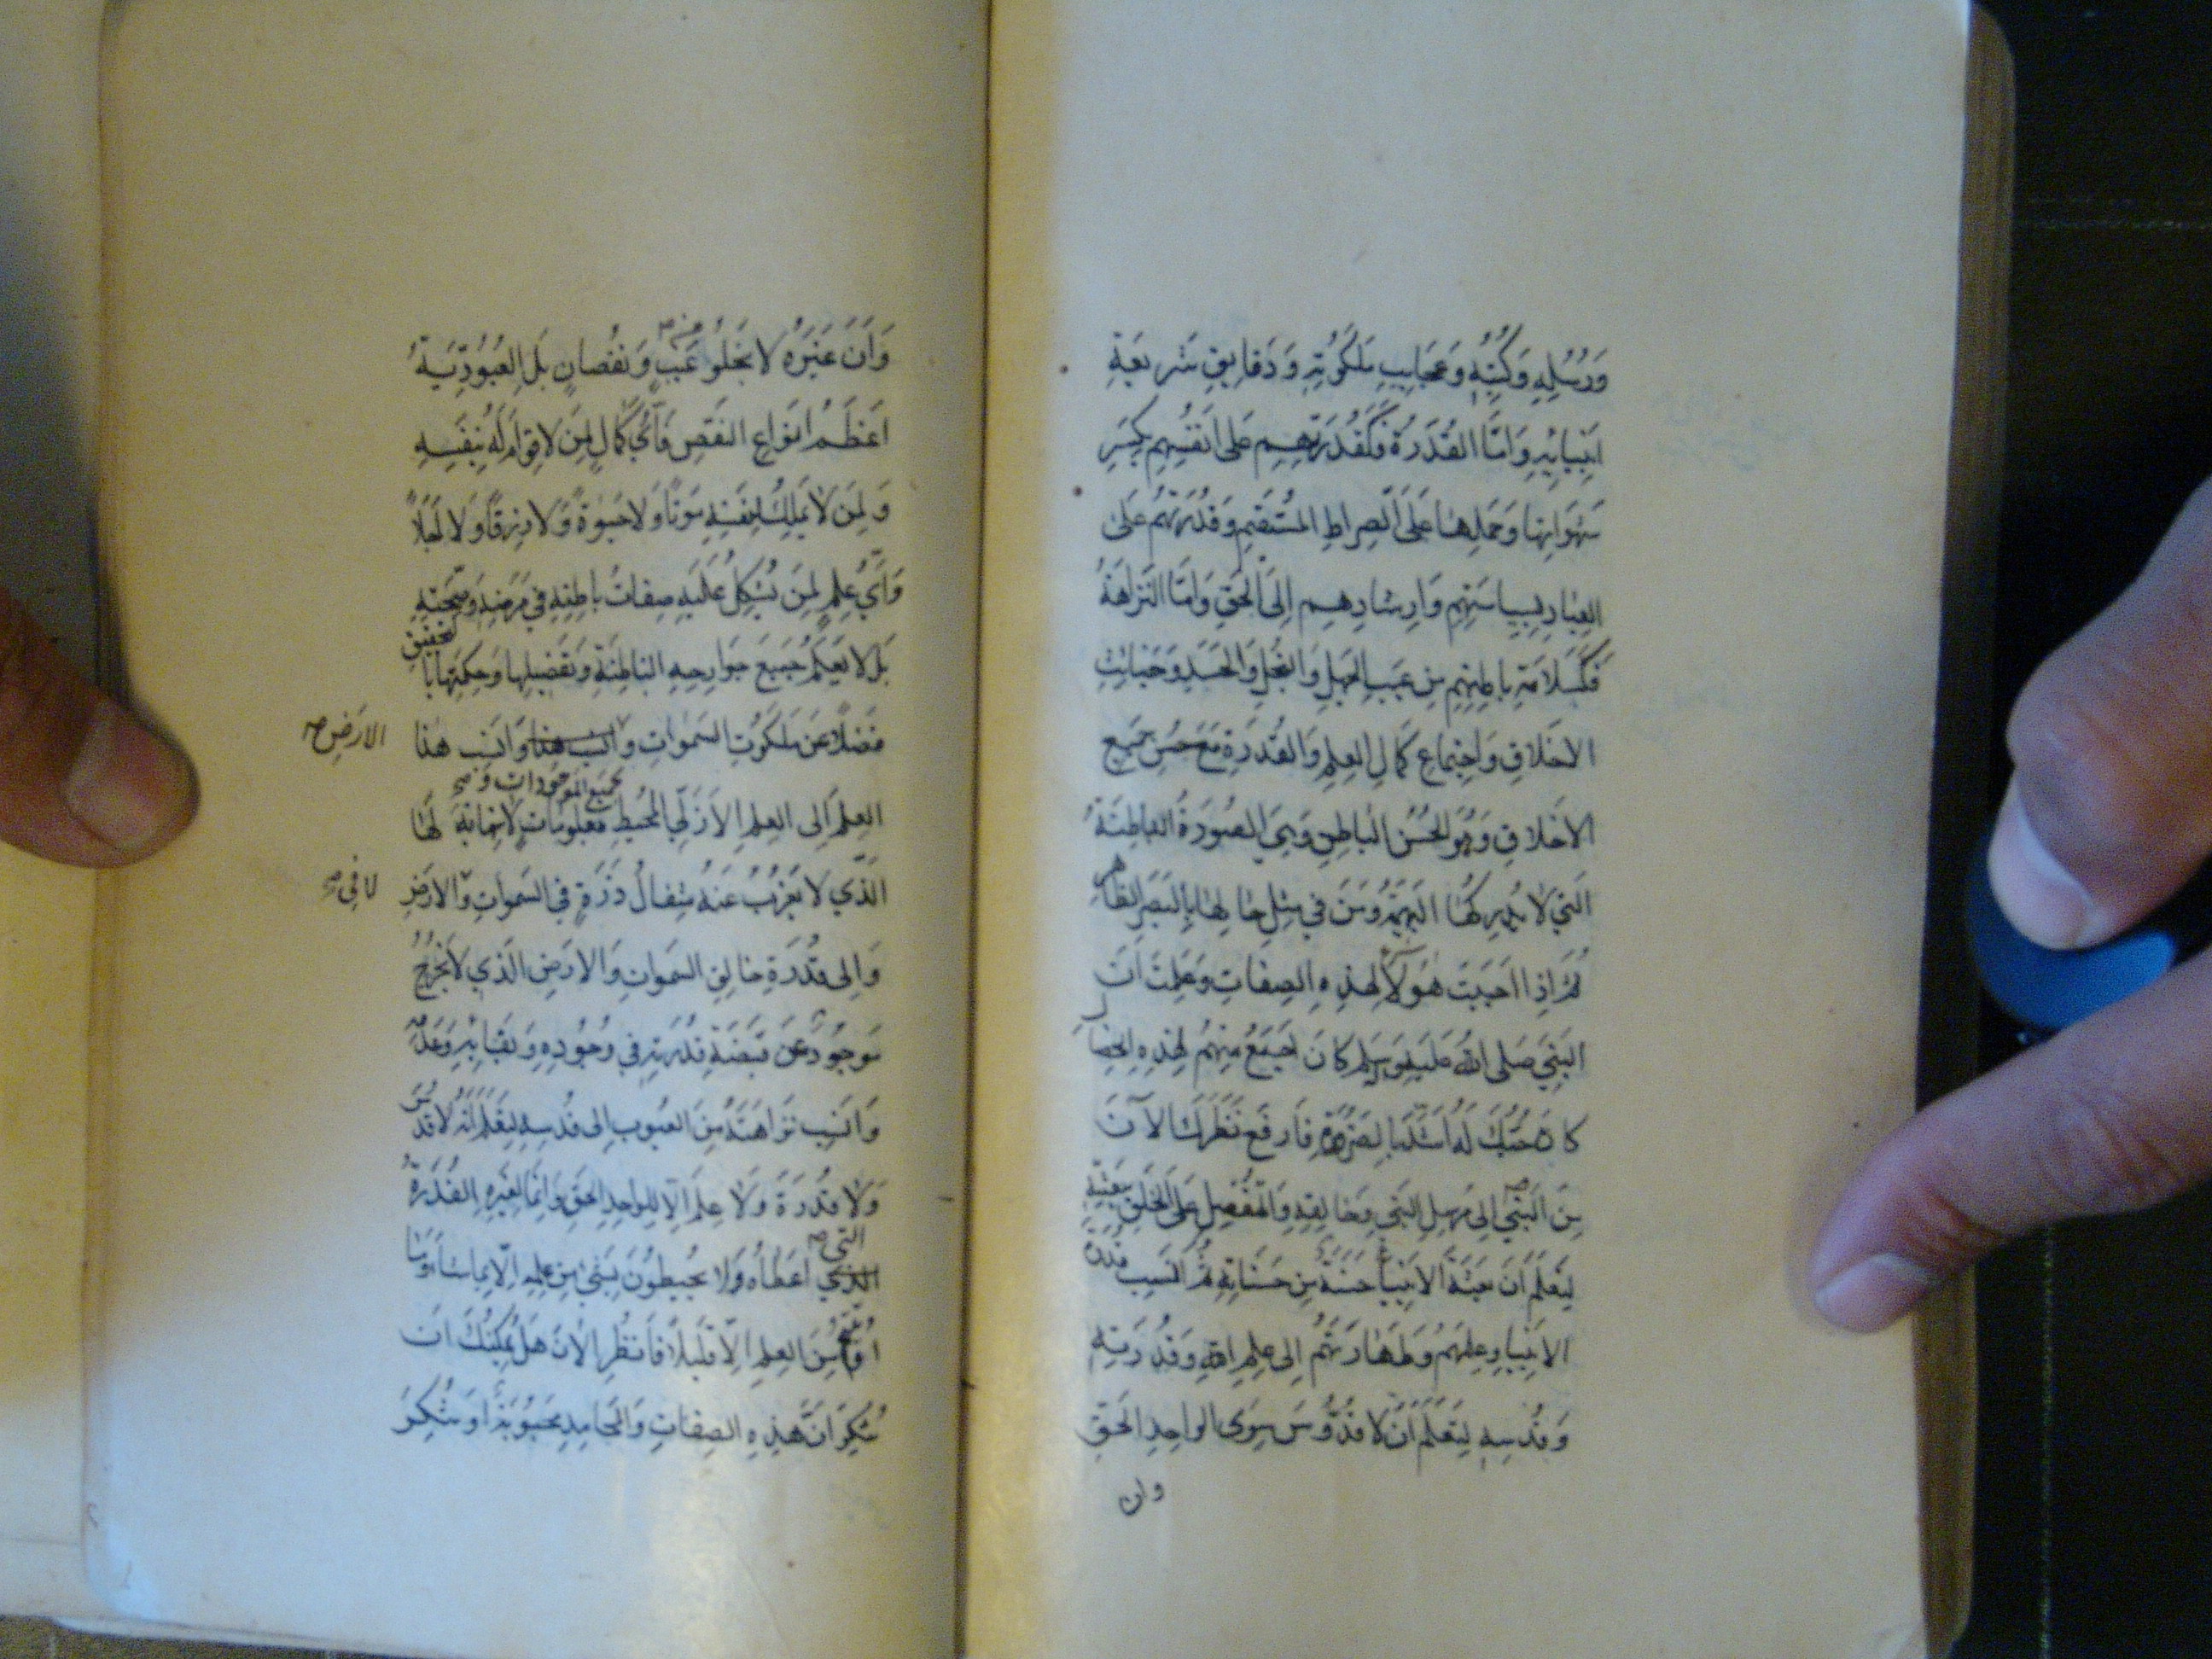 وَرُسُلِهِ وَكُتُبِهِ وَعَجَايِبِ مَلَكُوتِهِ وَدَقايِقِ شَرِيعَةِ
اَنْبِيائِهِ وَاَمَّا القُدْرَة فَكَقُدْرَتِهِم عَلى اَنفُسِهِم بِكَسْرِ
شَهَوَاتِها وَحَمْلِها عَلَى الصِراطِ المُسْتَقيمِ وَقُدْرَتِهِم عَلى
العِبادِ بِسِياسَتِهِم وَاِرشادِهِم اِلَى الحَقِ وَاَمَّا النَزاهَةُ
فَكَسَلامَةِ باطِنِهِم مِن عَيْبِ الجَهلِ وَالبُخلِ وَالحَسَدِ وَخَبائِثِ
الاَخلاقِ وَاجتِماعِ كَمالِ العِلمِ وَالقُدرَةِ مَعَ حُسنِ جَميعِ
الاَخلاقِ وَهُوَ الحُسْنُ الباطِن وَهِيَ الصورَةُ الباطِنَةُ
الَتي لا يُدرِكُها البَهيمَةُ وَمَن في مِثلِ حالِها بِالبَصَرِ الظاهِر
ثُمَّ اِذا اَحبَبتَ هٰؤلآء لِهٰذِهِ الصِفاتِ وَعَلِمتَ اَنَّ
النَبِيَّ صَلى الله عَلَيهِ وَسَلم كانَ اَجمَعَ مِنهُم لِهٰذِهِ الخِصالِ
كانَ حُبُّكَ لَهُ اَشَدَّ بِالضَرورَةِ فَارفَع نَظَرَكَ الآنَ
مِنَ النَبِيِّ اِلى مُرسِلِ النَبِيِّ وَخالِقِهِ وَالمُتَفَضِّلِ عَلَى الخَلقِ بِبَعْثِهِ
لِتَعلَمَ اَنَّ بَعثَةَ الاَنبِيآ حَسَنَةٌ مِن حَسَناتِهِ ثُمَّ انسُب قُدرَةَ
الاَنبِياء وَعِلمَهُم وَطَهارَتَهُم اِلى عِلمِ اللهِ وَقُدرَتِهِ
وَقُدسِهِ لِتَعلَمَ اَن لا قُدُّوسَ سِوَى الواحِدِ الحَقِّ
وان
وَاَنَّ غَيْرَهُ لا يَخلُو من عَيبٍ وَنُقصانٍ بَلِ العُبُودِيَّةُ
اَعظَمُ اَنواعِ النَقصِ فَاَيُّ كَمالٍ لِمَن لا قِوامَ لَهُ بِنَفسِهِ
وَلِمَن لا يَملِكُ لِنَفسِهِ مَوتًا وَلا حَيٰوةً وَلا رِزقًا وَلا اَجَلاً
وَاَيُّ عِلمٍ لِمَن يُشكِلُ عَلَيهِ صِفاتُ باطِنِهِ في مَرَضِهِ وَصِحَّتِهِ
بَل لا يَعلَمُ جَميعَ جَوارِحِهِ الباطِنَةِ وَتَفصيلِها وَحِكمَتِها بالتحقيق
فَضلاً عَن مَلَكُوتِ السَمٰواتِ وَانسب هذا وَانسِب هٰذا
الارَضِ صح
العِلمَ اِلى العِلمِ الاَزَلِيِّ المُحيطِ بجميع الموجودات و صح مَعلوماتٍ لا نِهايَةَ لَها
الَّذي لا يَعزُبُ عَنهُ مِثقالُ ذَرَّةٍ فِي السَمٰواتِ وَالاَرضِ
لا في صح
وَاِلى قُدرَةِ خالِقِ السَمٰواتِ وَالاَرضِ الَّذي لا يَخرُجُ
مَوجُودٌ عَن قَبضَةِ قُدرَتِهِ في وُجُودِهِ وَبَقائِهِ وَعَدَمِهِ
وَانسِب نَزاهَتَهُ مِنَ العُيوبِ اِلى قُدسِهِ لِتَعلَمَ اَنَّهُ لا قُدْسَ
وَلا قُدرَةَ وَلا عِلمَ اِلّا لِلواحِدِ الحَقِّ وَاِنَّما لِغَيرِهِ القُدرَةُ
الَّذي التي صح اَعطاهُ وَلا يُحيطونَ بِشَيءٍ مِن عِلمِهِ اِلّا بِما شاءَ وَما
اُوتيتم مِنَ العِلمِ اِلّا قَليلاً فَانظُرِ الاٰنَ هَل يُمكِنُكَ اَن
تُنكِرَ اَنَّ هٰذِهِ الصِفاتِ وَالمَحامِدِ مَحبُوبَةٌ اَو تُنكِرَ